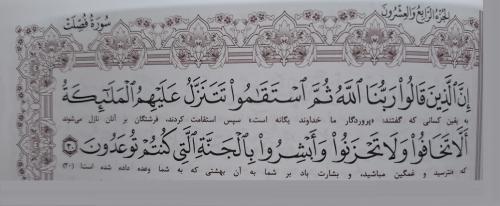 الجزء الرابع والعشرون
سورة فصلت
إِنَّ الَّذِينَ قَالُوا رَبُّنَا اللَّهُ ثُمَّ اسْتَقَامُوا تَتَنَزَّلُ عَلَيْهِمُ الْمَلَائِكَةُ
به یقین کسانی که گفتند: «پروردگار ما خداوند یگانه است» سپس استقامت کردند، فرشتگان بر آنان نازل می‌شوند
أَلَّا تَخَافُوا وَلَا تَحْزَنُوا وَأَبْشِرُوا بِالْجَنَّةِ الَّتِي كُنتُمْ تُوعَدُونَ ۝٣٠
که نترسید و غمگین مباشید، و بشارت باد بر شما به آن بهشتی که به شما وعده داده شده است! (۳۰)